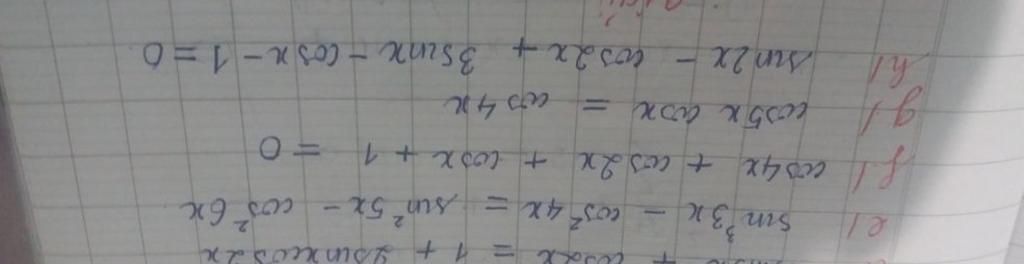 + cos2x = 1 + 2sinxcos2x
e/ sin²3x - cos²4x = sin²5x - cos²6x
f/ cos4x + cos2x + cosx + 1 = 0
g/ cos5x cosx = cos4x
h/ sin2x - cos2x + 3sinx - cosx - 1 = 0